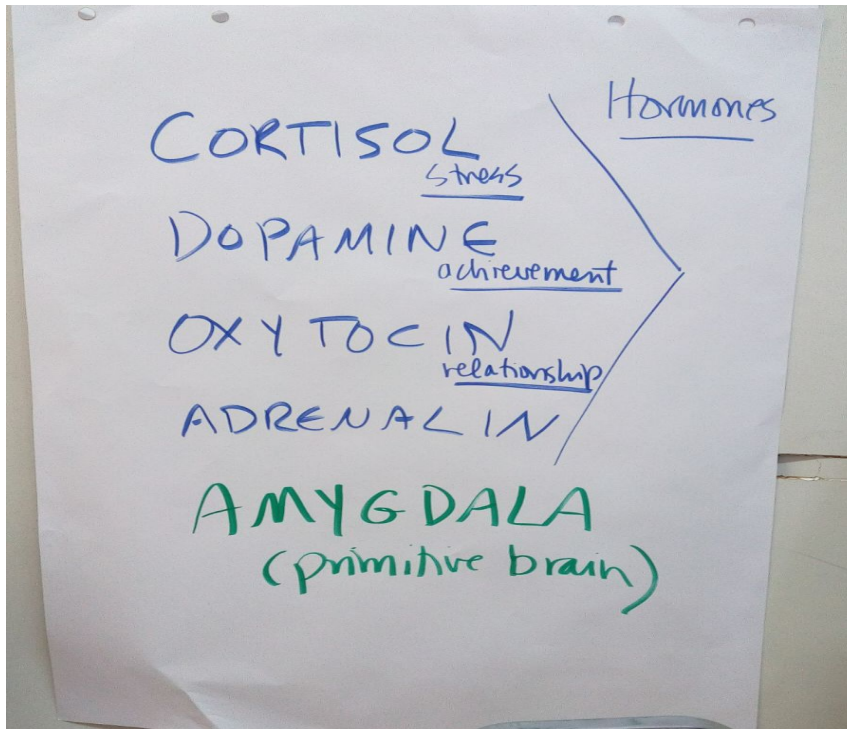 Hormones
CORTISOL
stress
DOPAMINE
achievement
OXYTOCIN
relationship
ADRENALIN
AMYGDALA
(primitive brain)